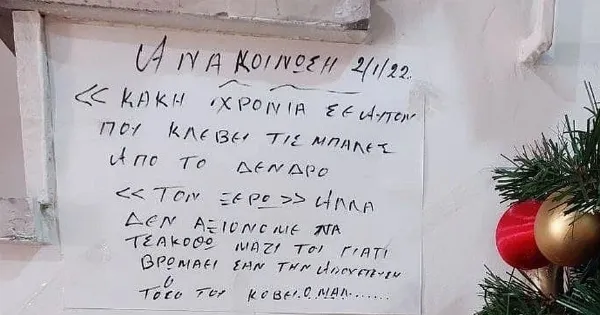 ΑΝΑΚΟΙΝΩΣΗ 2/1/22.
<< ΚΑΚΗ ΧΡΟΝΙΑ ΣΕ ΑΥΤΟΝ
ΠΟΥ ΚΛΕΒΕΙ ΤΙΣ ΜΠΑΛΕΣ
ΑΠΟ ΤΟ ΔΕΝΔΡΟ
<< ΤΟΝ ΞΕΡΩ >> ΑΛΛΑ
ΔΕΝ ΑΞΙΟΝΟΜΕ ΝΑ
ΤΣΑΚΟΘΩ ΜΑΖΙ ΤΟΥ ΓΙΑΤΙ
ΒΡΩΜΑΕΙ ΣΑΝ ΤΗΝ
ΤΟΣΟ ΤΟΥ ΚΟΒΕΙ. Ο ΜΑΛ......